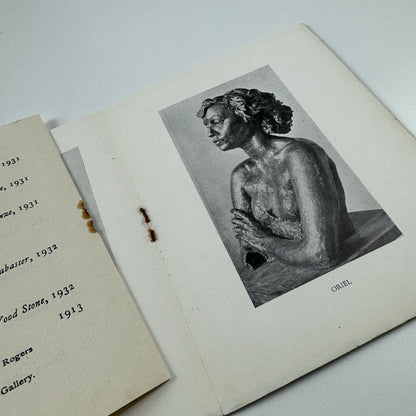 1931
1931
1931
1932
Wood Stone, 1932
1913
Rogers
Gallery.
ORIEL